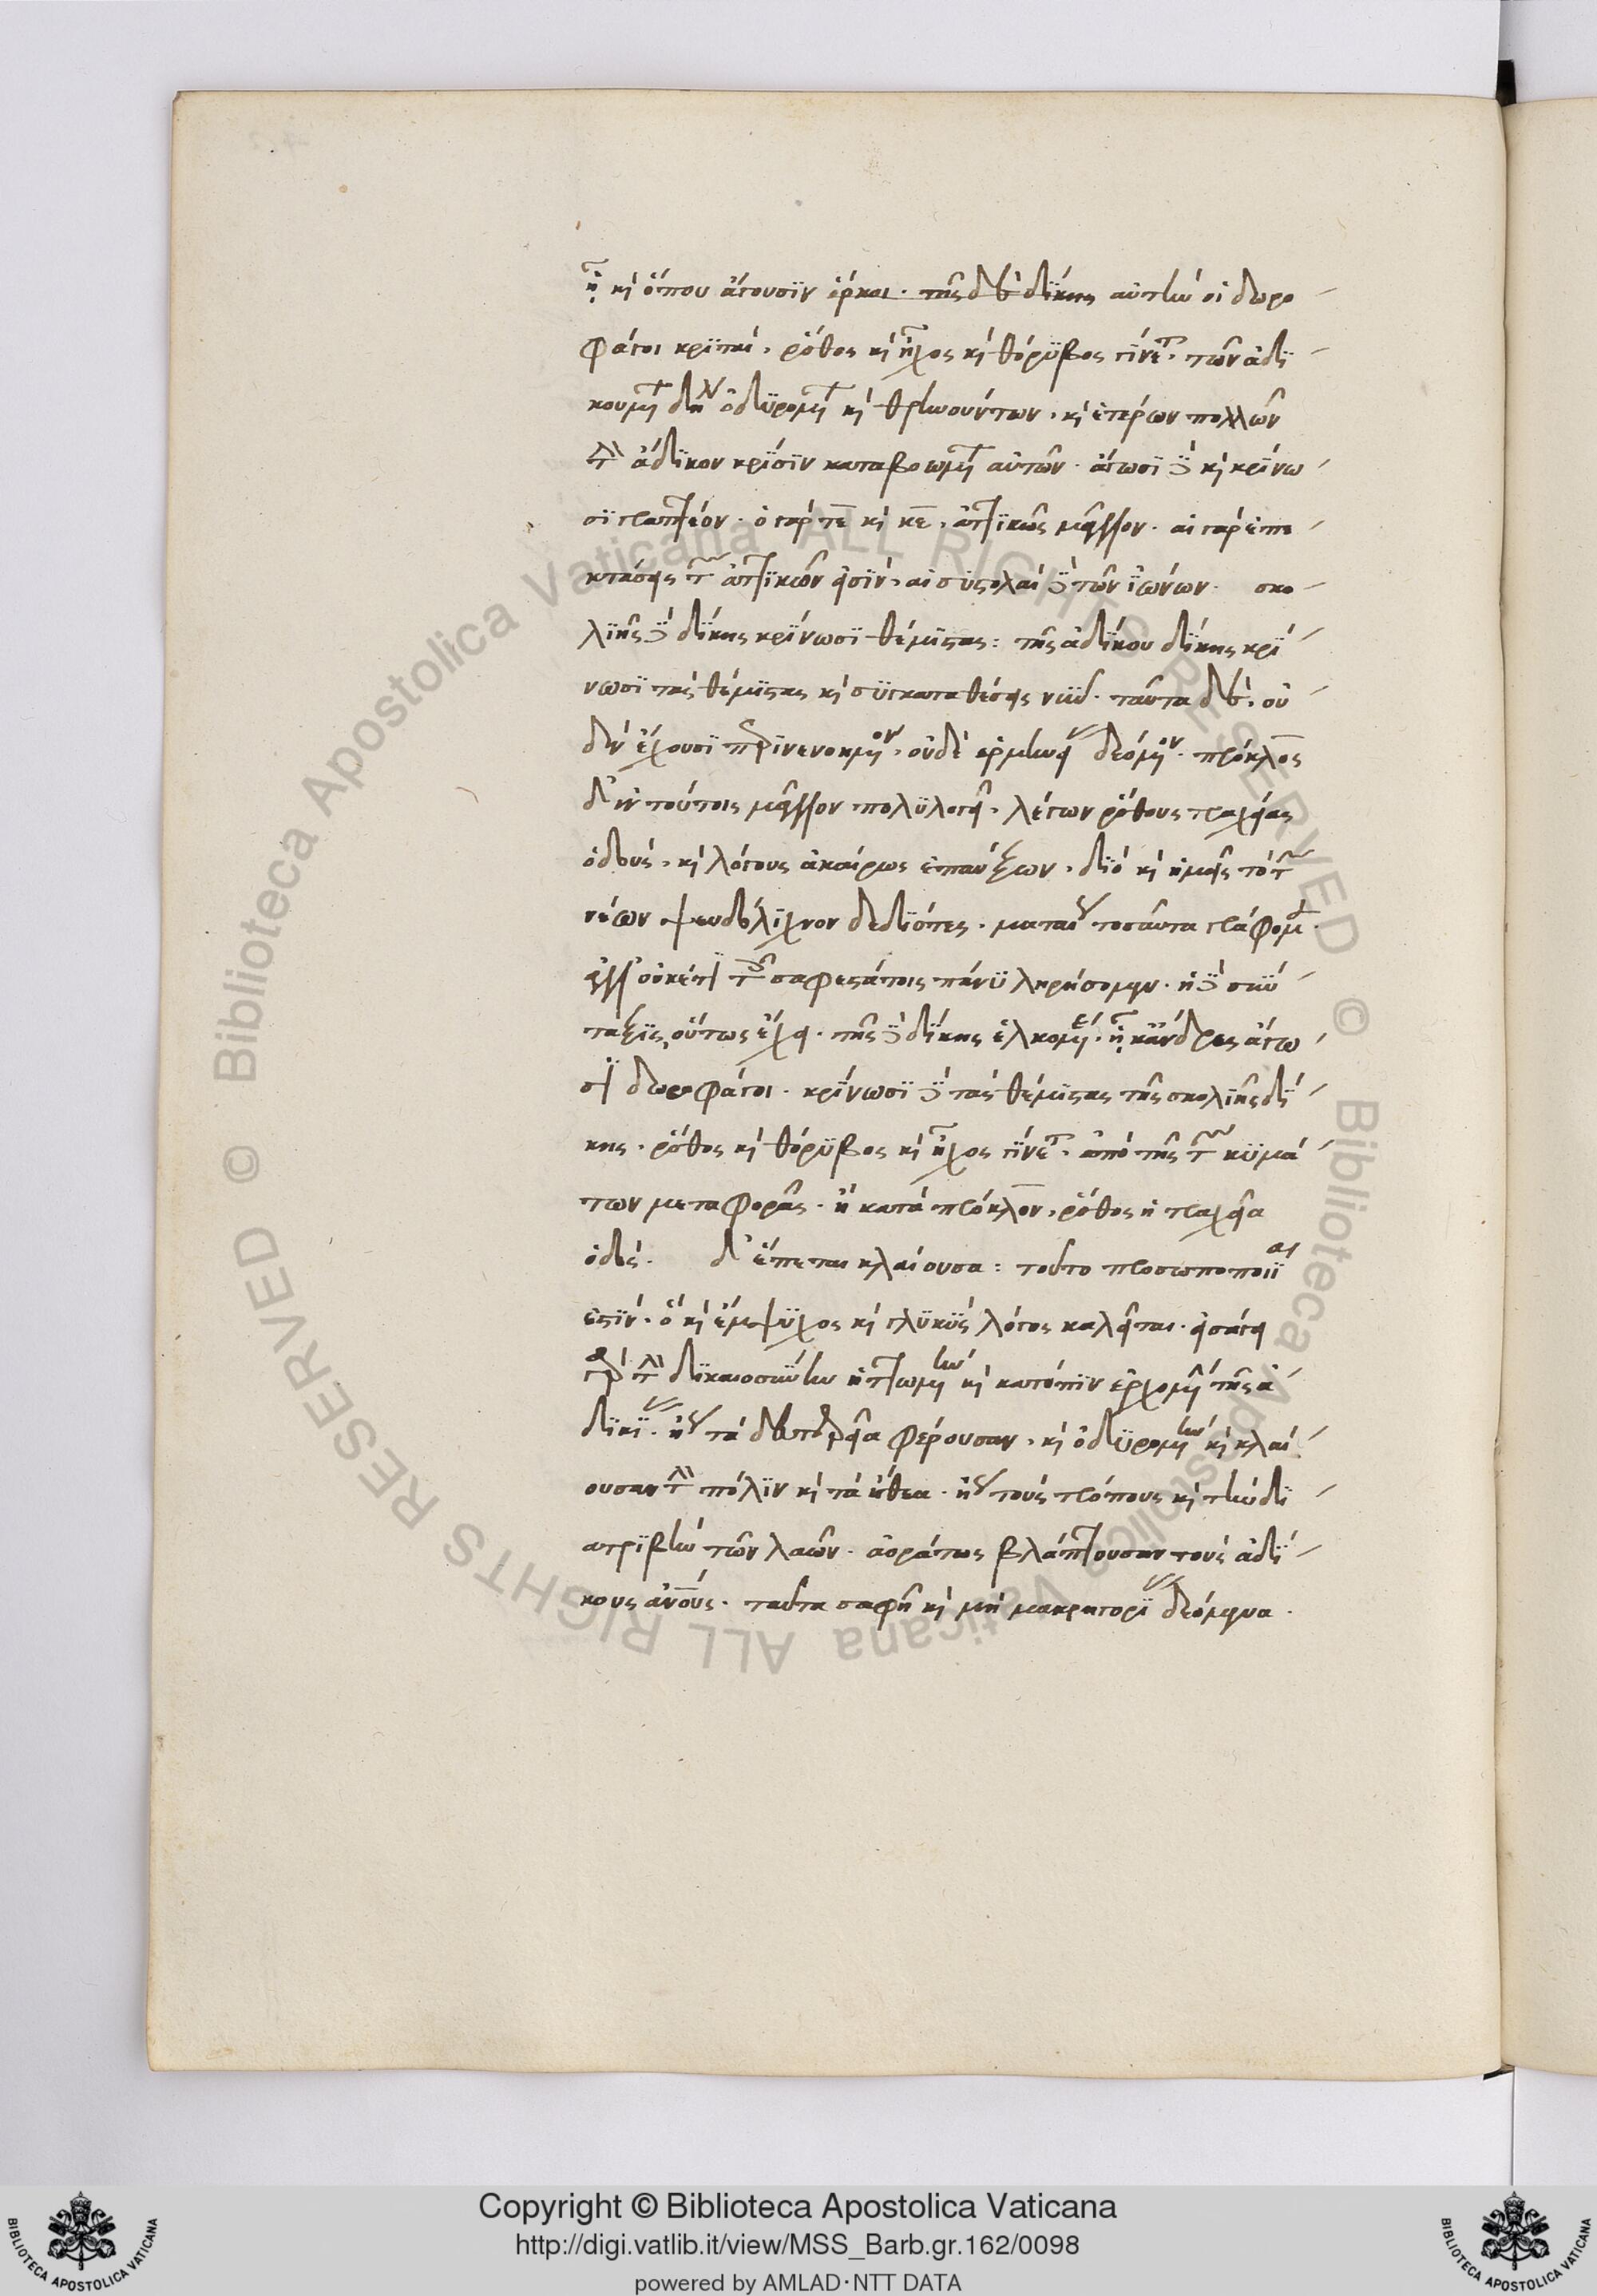 ᾗ καὶ ὅπου ἄγουσιν ἕρκοι. τῆς δὲ δίκης αὐτὴν οἱ δωρο
φάγοι κριταί, ῥόθος καὶ ἦχος καὶ θόρυβος γίνεται, τῶν ἀδι
κουμένων δηλονότι ὀδυρομένων καὶ θρηνούντων, καὶ ἑτέρων πολλῶν
τὴν ἄδικον κρίσιν καταβοωμένων αὐτῶν. ἄγωσι δὲ καὶ κρίνω
σι γραπτέον. ὁ γὰρ τε καὶ κε, ἀττικῶς μᾶλλον. αἱ γὰρ ἐπε
κτάσεις τῶν ἀττικῶν εἰσίν, αἱ συστολαὶ δὲ τῶν ἰώνων. σκο
λιῆς δὲ δίκης κρίνωσι θέμιστας: τῆς ἀδίκου δίκης κρί
νωσι τὰς θέμιστας καὶ συγκαταθέσεις νῦν. ταῦτα δὲ, οὐ
δὲν ἔχουσι περινενοημένον, οὐδὲ ἑρμηνείας δεόμενον. πρόκλος
δ' ἐν τούτοις μᾶλλον πολυλογεῖ, λέγων ῥόθους τραχείας
ὁδούς, καὶ λόγους ἀκαίρως ἐπαύξων, διὸ καὶ ἡμεῖς τὸ τῶν
νέων ψευδόλιχνον δεδιότες, ματαίως τοσαῦτα γράφομεν.
ἀλλ' οὐκέτι τοῖς σαφεστάτοις πάνυ ληρήσομεν. ἡ δὲ σύν
ταξις οὕτως ἔχει. τῆς δὲ δίκης ἑλκομένης, ᾗ κἂν ἄνδρες ἄγω
σι δωροφάγοι. κρίνωσι δὲ τὰς θέμιστας τῆς σκολιῆς δί
κης, ῥόθος καὶ θόρυβος καὶ ἦχος γίνεται, ἀπὸ τῆς τῶν κυμά
των μεταφορᾶς. ἢ κατὰ πρόκλον, ῥόθος ἡ τραχεῖα
ὁδός. δ' ἕπεται κλαίουσα: τοῦτο προσωποποιία
ἐστίν. ὃ καὶ ἔμψυχος καὶ γλυκὺς λόγος καλεῖται. εἰσάγει
γὰρ τὴν δικαιοσύνην ἡττωμένην καὶ κατόπιν ἐρχομένην τῆς ἀ
δικίας. ἤγουν τὰ δευτερεῖα φέρουσαν, καὶ ὀδυρομένην καὶ κλαί
ουσαν τὴν πόλιν καὶ τὰ ἤθεα. ἤγουν τοὺς τρόπους καὶ τὴν δι
ατριβὴν τῶν λαῶν. ἀοράτως βλάπτουσαν τοὺς ἀδί
κους ἀνους. ταῦτα σαφῆ καὶ μὴ μακρηγορίας δεόμενα.
Copyright © Biblioteca Apostolica Vaticana
http://digi.vatlib.it/view/MSS_Barb.gr.162/0098
powered by AMLAD·NTT DATA